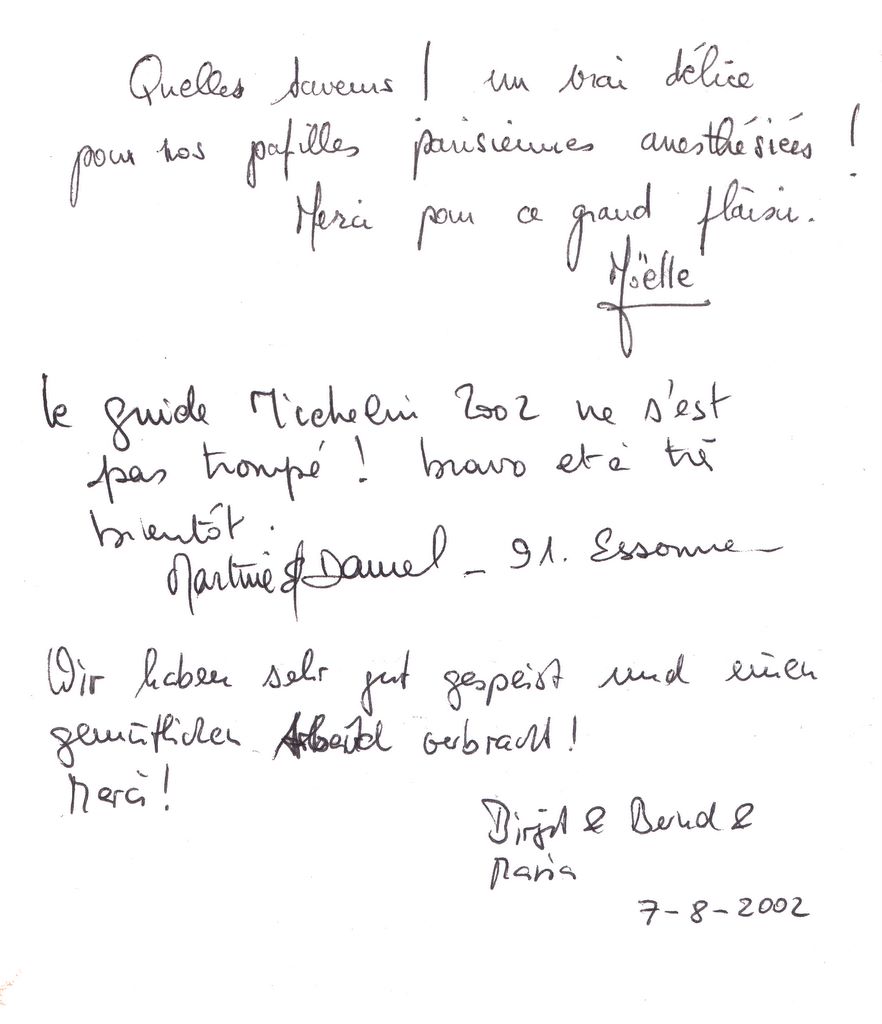 Quelles saveurs ! un vrai délice
pour nos papilles parisiennes anesthésiées !
Merci pour ce grand plaisir.
le guide Michelin 2002 ne s'est
pas trompé ! bravo et à très
bientôt.
Martine & Daniel - 91. Essonne
Wir haben sehr gut gespeist und einen
gemütlichen verbracht!
Merci!
Birgit & Bernd &
Maria
7-8-2002